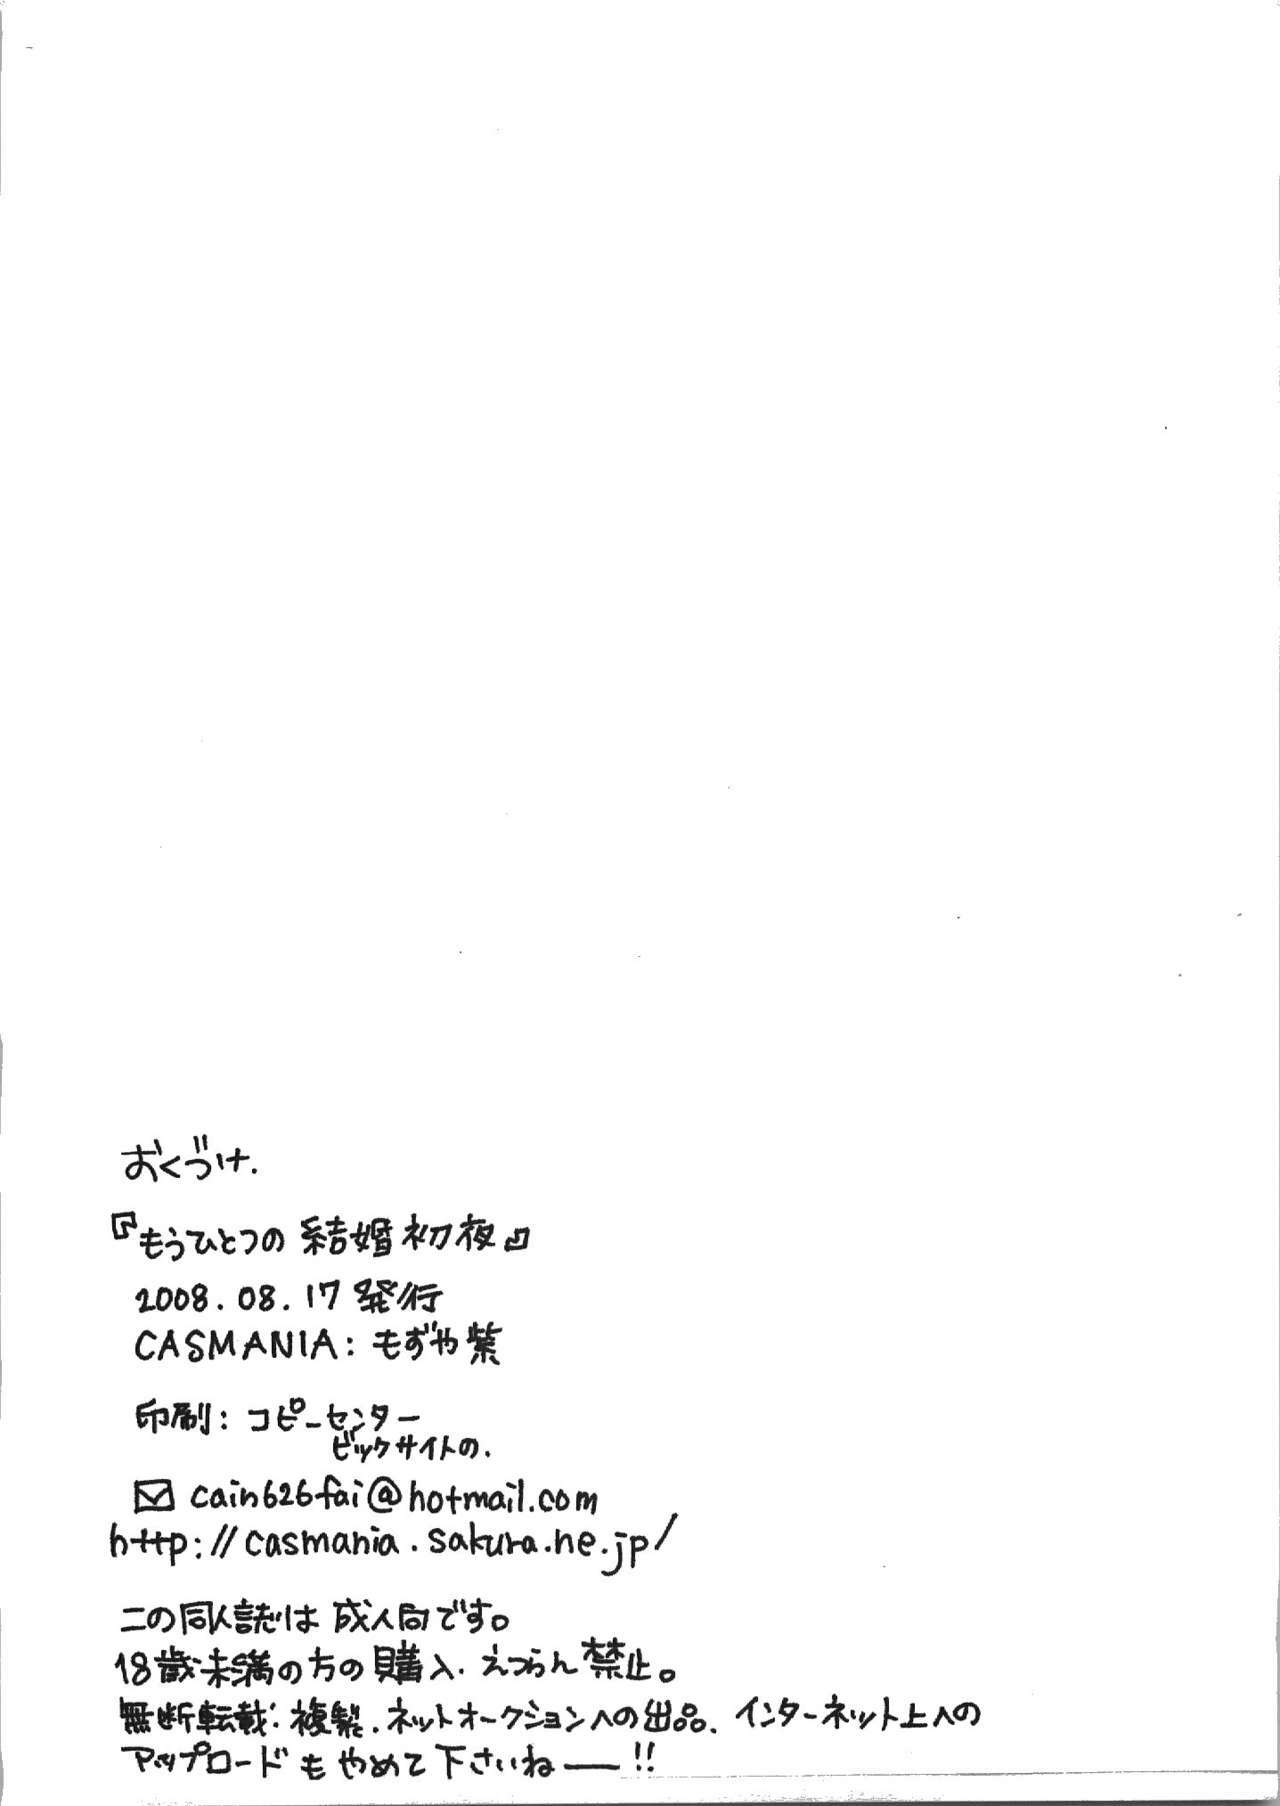 おくづけ.
『もうひとつの結婚初夜』
2008.08.17発行
CASMANIA:もずや紫
印刷:コピーセンター
ビックサイトの.
cain626fai@hotmail.com
http://casmania.sakura.ne.jp/
この同人誌は成人向です。
18歳未満の方の購入.えつらん禁止。
無断転載.複製.ネットオークションへの出品.インターネット上への
アップロードもやめて下さいねー!!